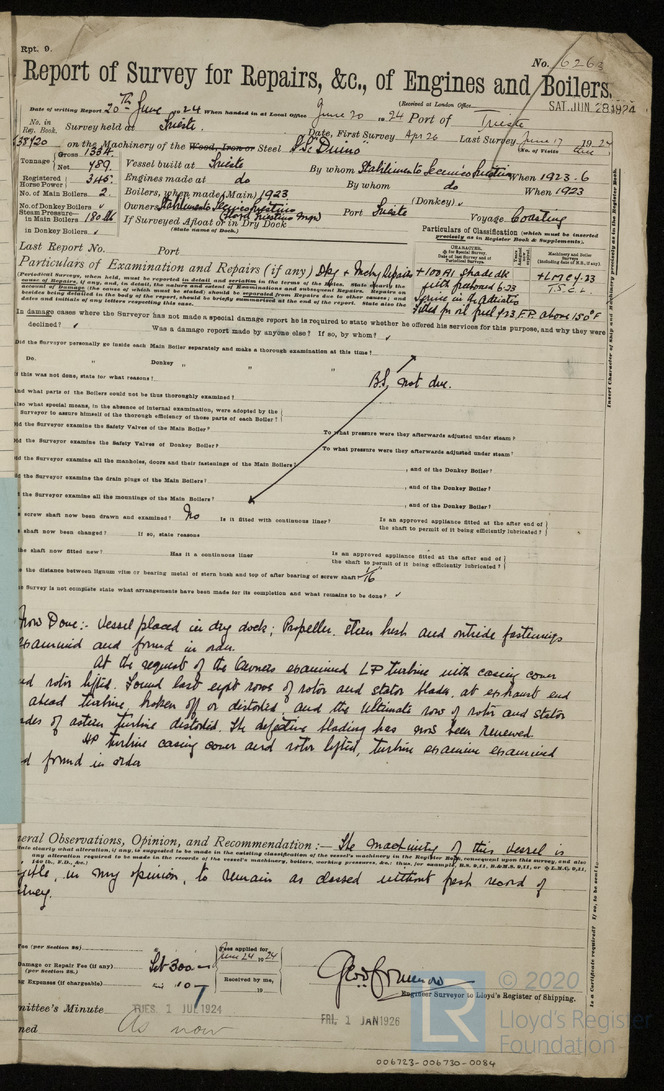 Rpt. 9.
No. 6263
Report of Survey for Repairs, &c., of Engines and Boilers.
(Received at London Office
SAT. JUN. 28 1924
Date of writing Report 20th June 1924 When handed in at Local Office June 20 1924 Port of Trieste
No. in Reg. Book. Survey held at Trieste. Date, First Survey Apr 26 Last Survey June 17 1924
(No. of Visits
38920 on the Machinery of the Wood, Iron or Steel S.S. "Duino"
Tonnage Gross 1334.
Net 489. Vessel built at Trieste By whom Stabilimento Tecnico When 1923.6
Registered Horse Power 345 Engines made at do By whom do When 1923
No. of Main Boilers 2. Boilers, when made (Main) 1923 (Donkey) ✓
No. of Donkey Boilers ✓ Owners Port Trieste Voyage Coasting
Steam Pressure in Main Boilers 180 lb If Surveyed Afloat or in Dry Dock
in Donkey Boilers ✓ (State name of Dock.)
Particulars of Classification (which must be inserted precisely as in Register Book & Supplements).
Last Report No. Port
Particulars of Examination and Repairs (if any) Dkg + Mchy Repairs
+100A1 shade dk
with freeboard 6.23
Service in the Adriatic
Fitted for oil fuel 4.23 F.P. above 150°F
+LMC 4.23
T.S.
(Periodical Surveys, when held, to be reported in detail and seriatim in the terms of the Rules.
In damage cases where the Surveyor has not made a special damage report he is required to state whether he offered his services for this purpose, and why they were
declined? ✓ Was a damage report made by anyone else? If so, by whom? ✓
Did the Surveyor personally go inside each Main Boiler separately and make a thorough examination at this time?
Do. " Donkey " " "
If this was not done, state for what reasons?
B.S. not due.
And what parts of the Boilers could not be thus thoroughly examined?
Also what special means, in the absence of internal examination, were adopted by the
Surveyor to assure himself of the thorough efficiency of those parts of each Boiler?
Did the Surveyor examine the Safety Valves of the Main Boiler? To what pressure were they afterwards adjusted under steam?
Did the Surveyor examine the Safety Valves of Donkey Boiler? To what pressure were they afterwards adjusted under steam?
Did the Surveyor examine all the manholes, doors and their fastenings of the Main Boilers? , and of the Donkey Boiler?
Did the Surveyor examine the drain plugs of the Main Boilers? , and of the Donkey Boiler?
t the Surveyor examine all the mountings of the Main Boilers? , and of the Donkey Boiler?
screw shaft now been drawn and examined? No Is it fitted with continuous liner? Is an approved appliance fitted at the after end of
the shaft to permit of it being efficiently lubricated?
shaft now been changed? If so, state reasons
he shaft now fitted new? Has it a continuous liner Is an approved appliance fitted at the after end of
the shaft to permit of it being efficiently lubricated?
s the distance between lignum vitæ or bearing metal of stern bush and top of after bearing of screw shaft? 1/16
e Survey is not complete state what arrangements have been made for its completion and what remains to be done? ✓
Now Done:- Vessel placed in dry dock; Propeller, stern bush and outside fastenings
examined and found in order.
At the request of the Owners examined LP turbine with casing cover
nd rotor lifted. Found last eight rows of rotor and stator blades, at exhaust end
ahead turbine, broken off or distorted, and the ultimate row of rotor and stator
ades of astern turbine distorted. The defective blading has now been renewed
HP turbine casing cover and rotor lifted, turbine examine examined
d found in order
neral Observations, Opinion, and Recommendation :— The machinery of this vessel is
gible, in my opinion, to remain as classed without fresh record of
urvey.
Fee (per Section 28)
Damage or Repair Fee (if any) (per Section 28.) 300
ng Expenses (if chargeable) 10
Fees applied for June 24 1924
Received by me, 19
Engineer Surveyor to Lloyd's Register of Shipping.
mittee's Minute TUES. 1 JUL 1924
FRI. 1 JAN 1926
ned As now
© 2020
Lloyd's Register
Foundation
LR
006723-006730-0084
Insert Character of Ship and Machinery precisely as in the Register Book.
Is a Certificate required? If so, to be sent to